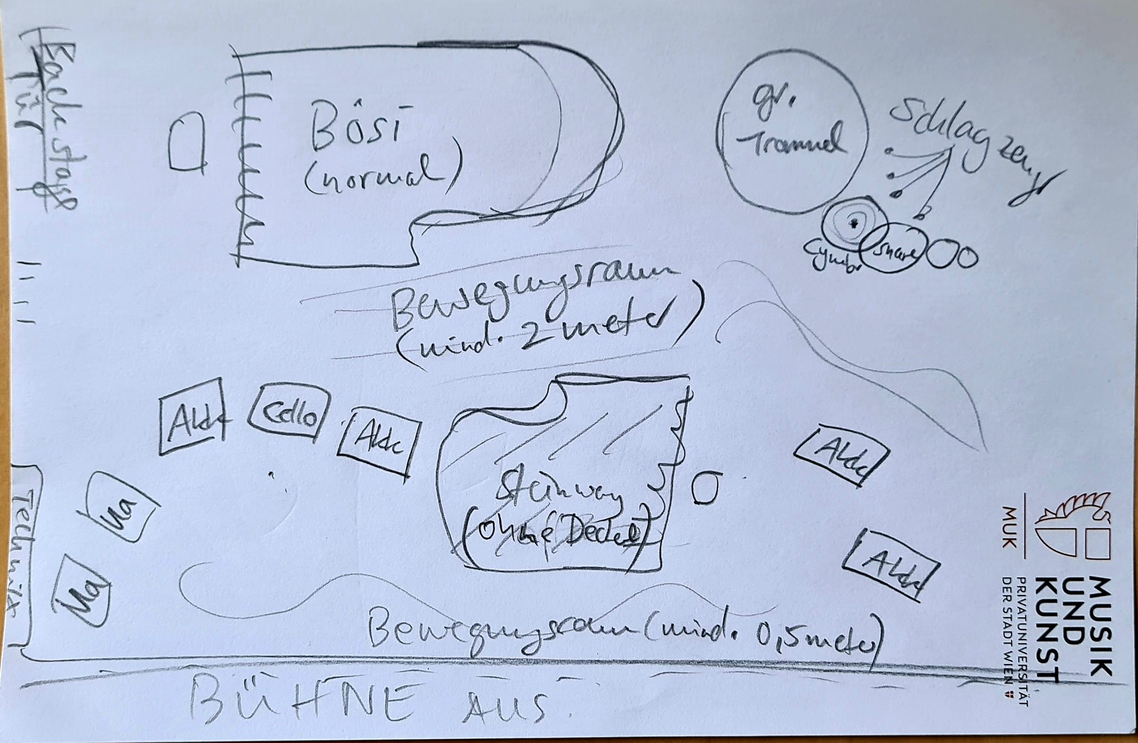 Backstage
Tür
Bösi
(normal)
gr.
Trommel
Schlagzeug
Cymbal
snare
Bewegungsraum
(mind. 2 meter)
Akk
Cello
Akk
Akk
Steinway
(ohne Deckel)
Akk
Technik
MUK
MUSIK
UND
KUNST
PRIVATUNIVERSITÄT
DER STADT WIEN
Bewegungsraum (mind. 0,5 meter)
BÜHNE AUS.